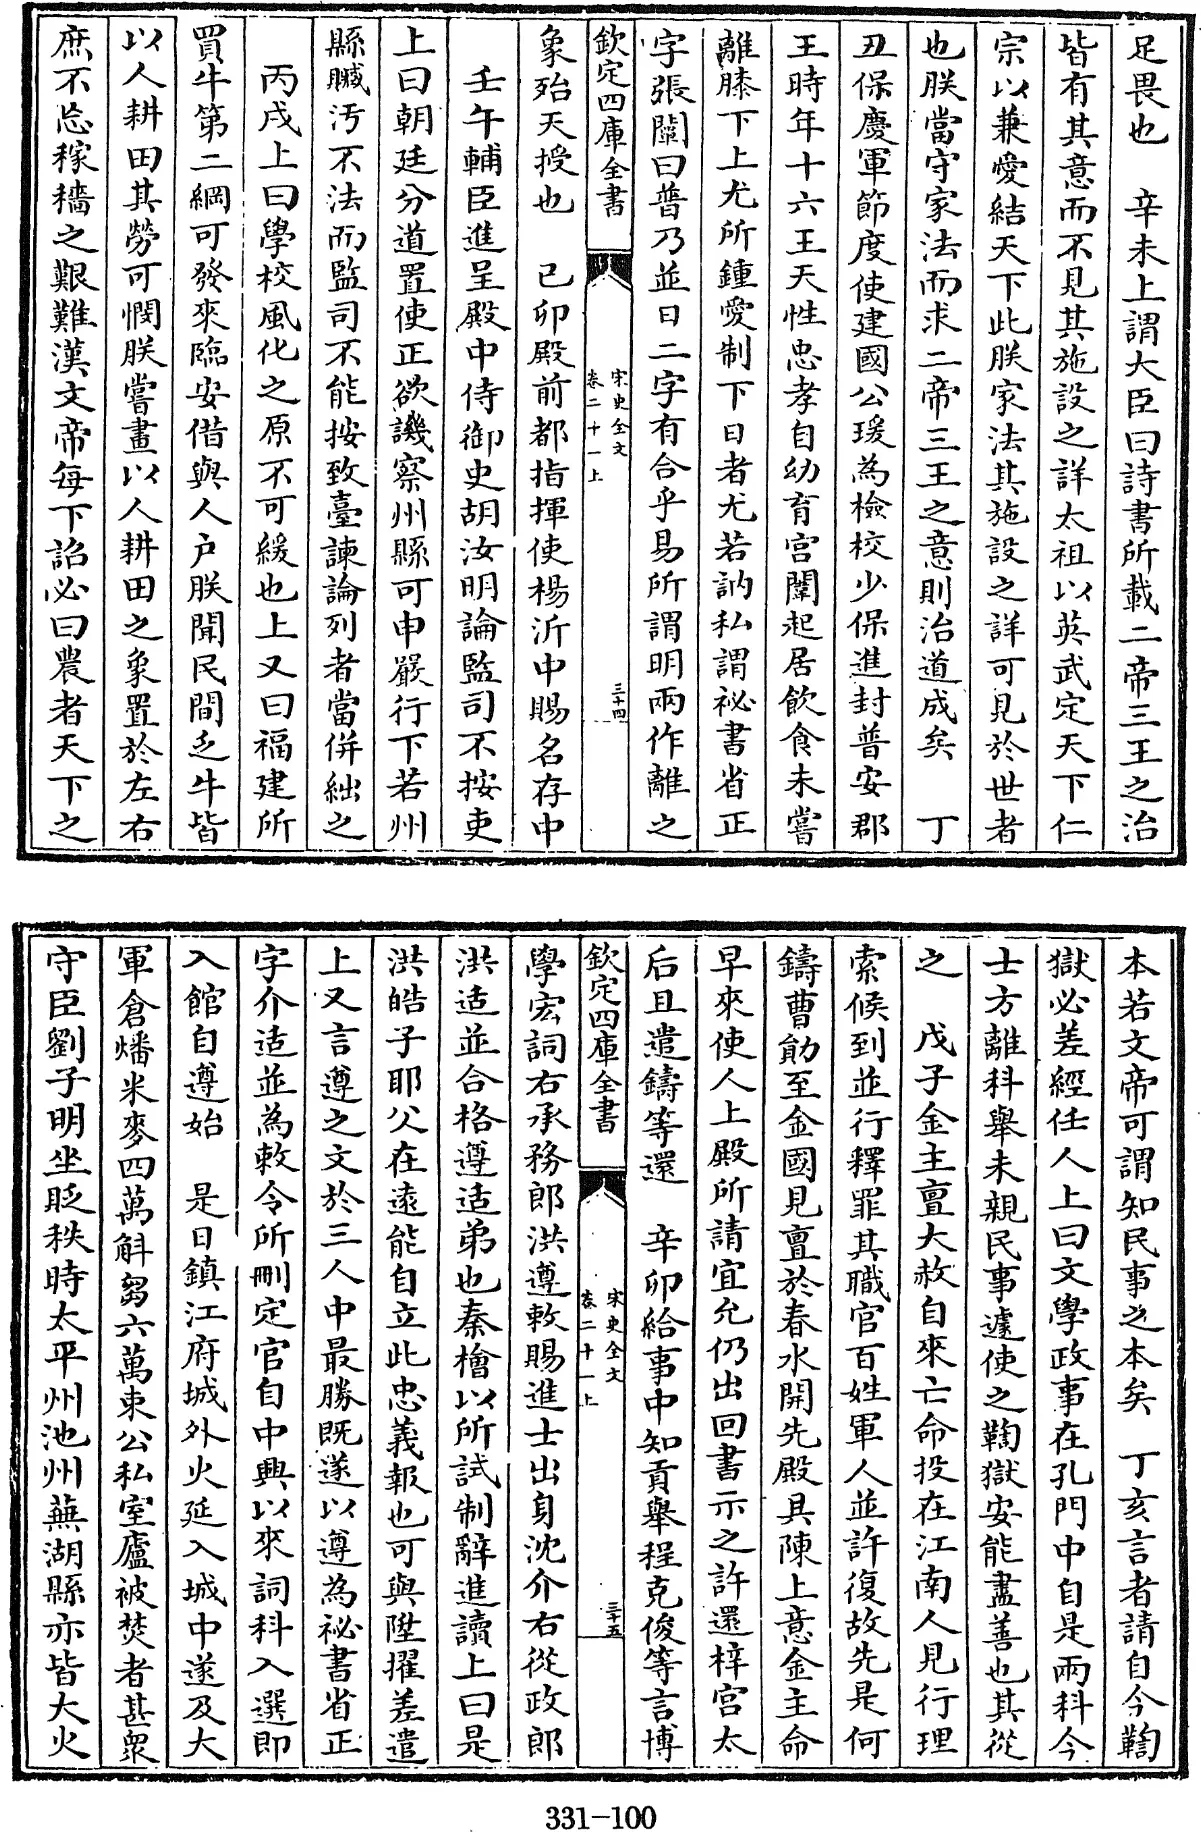 足畏也　辛未上謂大臣曰詩書所載二帝三王之治
皆有其意而不見其施設之詳太祖以英武定天下仁
宗以兼愛結天下此朕家法其施設之詳可見於世者
也朕當守家法而求二帝三王之意則治道成矣　丁
丑保慶軍節度使建國公瑗為檢校少保進封普安郡
王時年十六王天性忠孝自幼育宮闈起居飲食未嘗
離膝下上尤所鍾愛制下日者尤若訥私謂祕書省正
字張闡曰普乃並日二字有合乎易所謂明兩作離之
欽定四庫全書
宋史全文
卷二十一上
三十四
象殆天授也　己卯殿前都指揮使楊沂中賜名存中
壬午輔臣進呈殿中侍御史胡汝明論監司不按吏
上曰朝廷分道置使正欲譏察州縣可申嚴行下若州
縣贓汚不法而監司不能按致臺諫論列者當併絀之
丙戌上曰學校風化之原不可緩也上又曰福建所
買牛第二綱可發來臨安借與人户朕聞民間乏牛皆
以人耕田其勞可憫朕嘗畫以人耕田之象置於左右
庶不忘稼穡之艱難漢文帝每下詔必曰農者天下之
本若文帝可謂知民事之本矣　丁亥言者請自今鞫
獄必差經任人上曰文學政事在孔門中自是兩科今
士方離科舉未親民事遽使之鞫獄安能盡善也其從
之　戊子金主亶大赦自來亡命投在江南人見行理
索候到並行釋罪其職官百姓軍人並許復故先是何
鑄曹勛至金國見亶於春水開先殿具陳上意金主命
早來使人上殿所請宜允仍出回書示之許還梓宮太
后且遣鑄等還　辛卯給事中知貢舉程克俊等言博
欽定四庫全書
宋史全文
卷二十一上
三十五
學宏詞右承務郎洪遵敕賜進士出身沈介右從政郎
洪适並合格遵适弟也秦檜以所試制辭進讀上曰是
洪皓子耶父在遠能自立此忠義報也可與陞擢差遣
上又言遵之文於三人中最勝既遂以遵為祕書省正
字介适並為敕令所刪定官自中興以來詞科入選即
入館自遵始　是日鎮江府城外火延入城中遂及大
軍倉燔米麥四萬斛芻六萬束公私室廬被焚者甚衆
守臣劉子明坐貶秩時太平州池州蕪湖縣亦皆大火
331-100